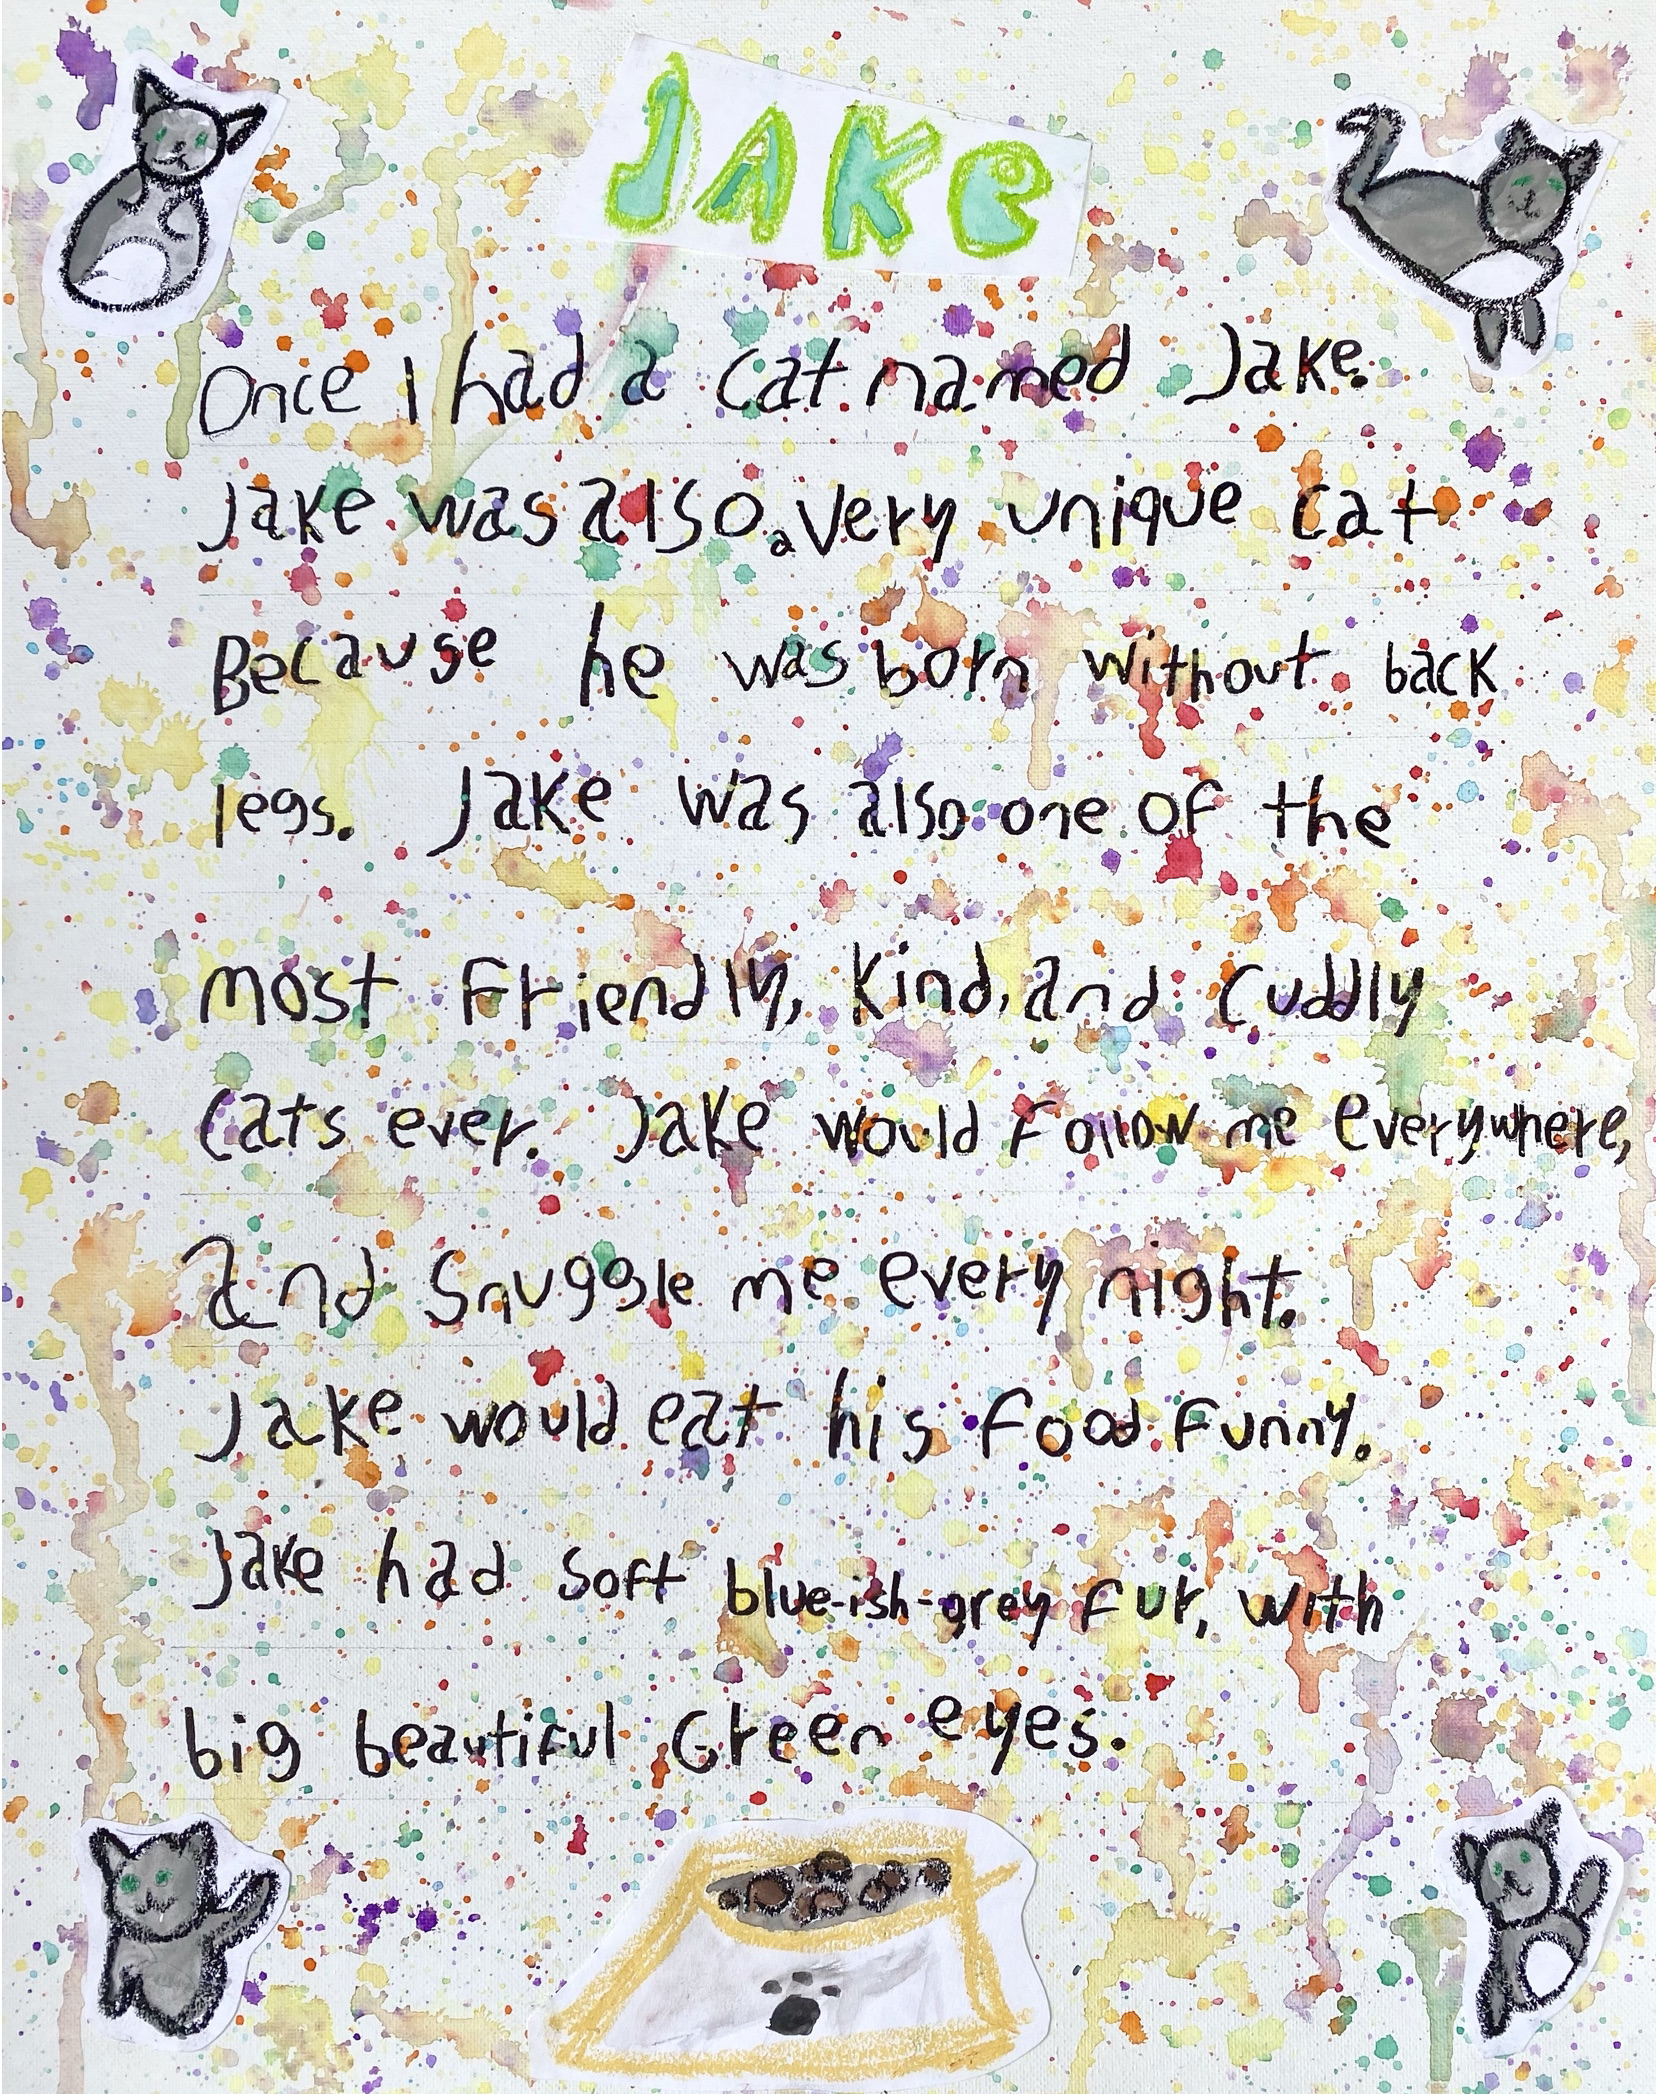 JAKe
Once I had a cat named Jake.
Jake was also a very unique cat
Because he was born without back
legs. Jake was also one of the
most Friendly, Kind, and Cuddly
Cats ever. Jake would Follow me everywhere,
and Snuggle me every night.
Jake would eat his food Funny.
Jake had soft blue-ish-grey fur, with
big beautiful Green eyes.